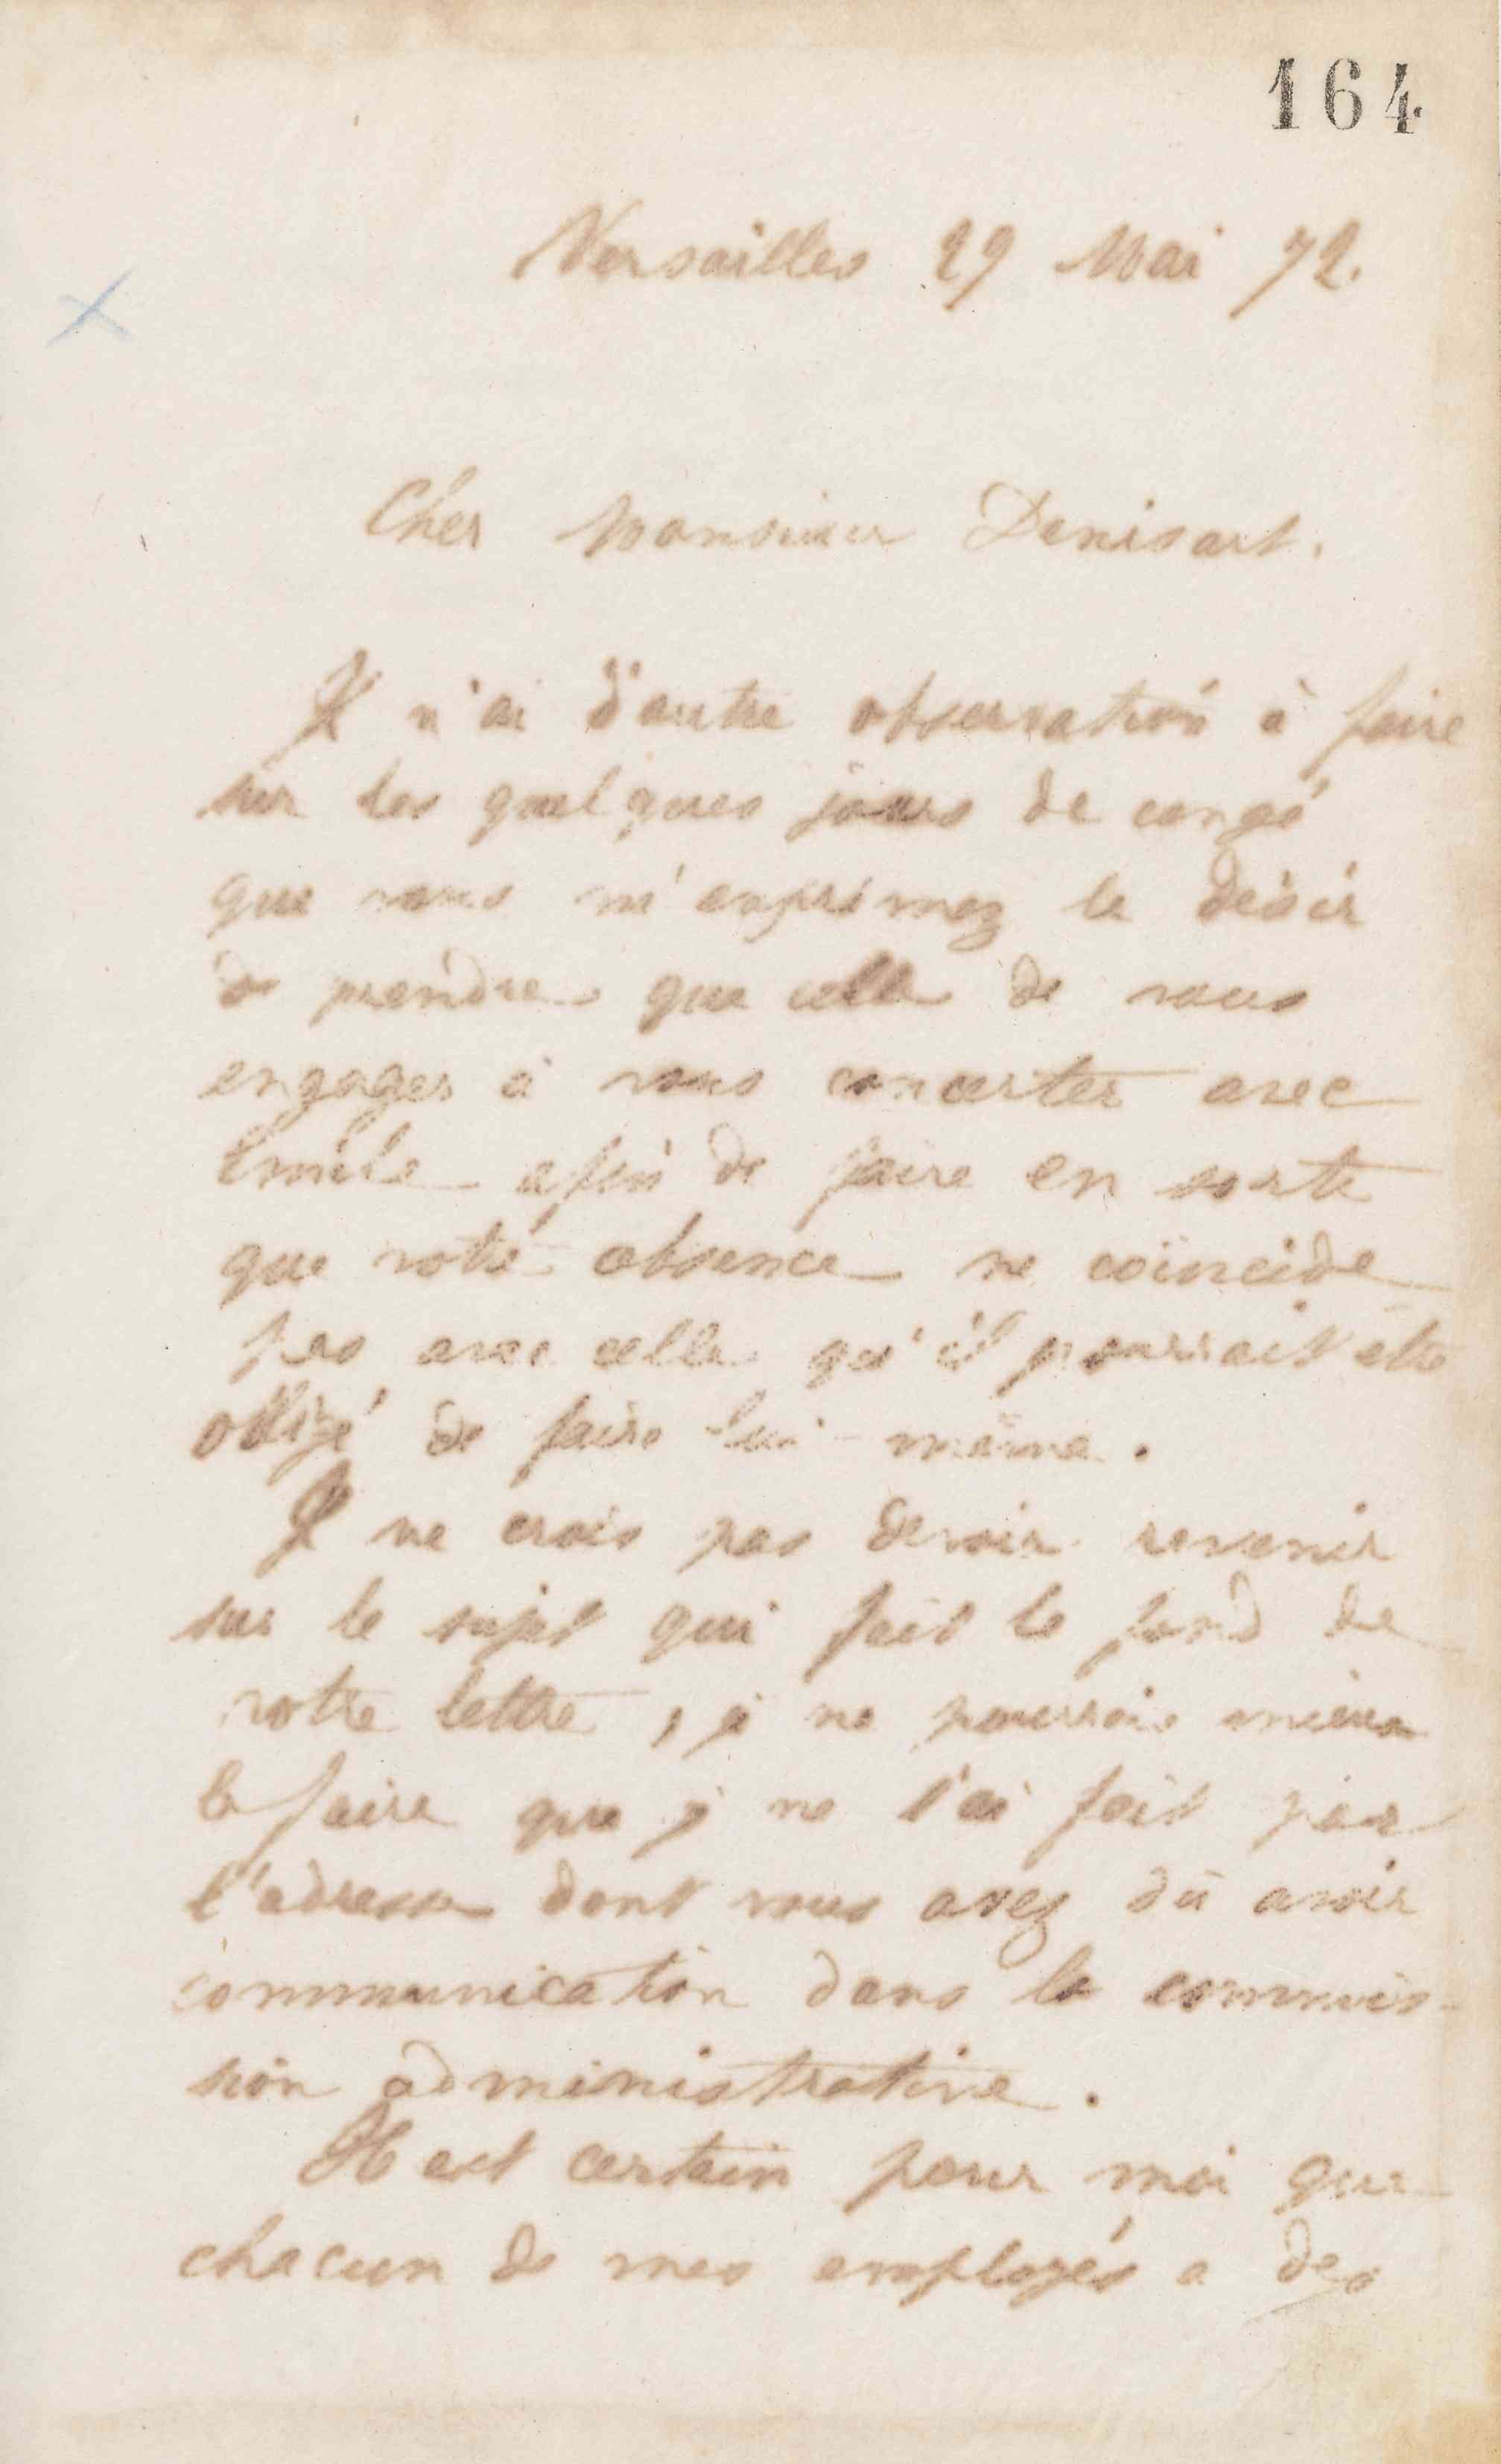 164
Versailles 29 Mai 72.
Cher Monsieur Denisart.
Je n'ai d'autre observation à faire
sur les quelques jours de congé
que vous m'exprimez le désir
de prendre que celle de vous
engager à vous concerter avec
Emile afin de faire en sorte
que votre absence ne coïncide
pas avec celle qu'il pourrait être
obligé de faire lui-même.
Je ne crois pas devoir revenir
sur le sujet qui fait le fond de
votre lettre, je ne pourrais mieux
le faire que je ne l'ai fait par
l'adresse dont vous avez dû avoir
communication dans la commis-
sion administrative.
Il est certain pour moi que
chacun de mes employés a des